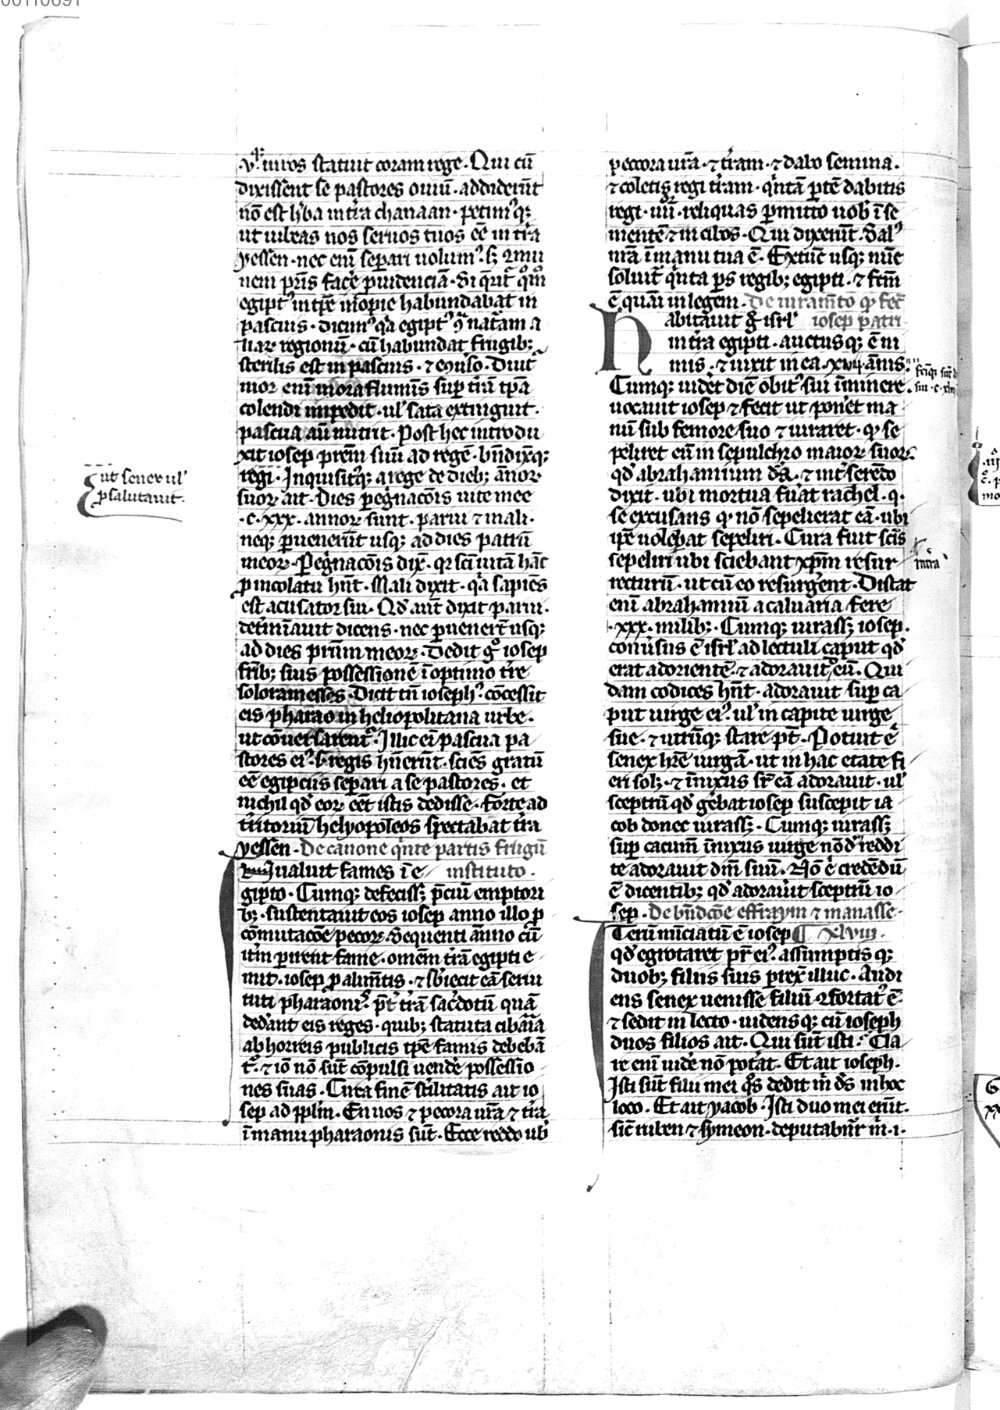 v. uiros statuit coram rege. Qui cū
dixissent se pastores ouiū. addiderūt
nō est h'ba in t'ra chanaan. petimꝰqꝫ
ut iubeas nos seruos tuos eē in t'ra
yessen. nec eni᷒ sep̄ari uolumꝰ. sꝫ
nem p̄ris facē prudenciā. Si q̄rit᷒ q̄m̄o
egiptꝰ in tp̄e inopie habundabat in
pascuis. dicimꝰ q̄a egiptꝰ naturam a
liar᷒ regionū. cū habundat frugibꝫ
sterilis est in pascuis. ⁊ eḡuso. Diut'
nior eni᷒ mora fluminis sup t'rā tp̄a
colendi impedit. ul' sata extinguit.
pascua aūt nutrit. Post hec introdu
xit iosep prem̄ suū ad regē. bn̄dixqꝫ
regi. Inquisitꝰqꝫ a rege de diebꝫ annoꝝ
suoꝝ ait. Dies peg̓nac̄ōis uite mee
.c.xxx. annoꝝ sunt. parui ⁊ mali.
neqꝫ p̱uenerūt usqꝫ ad dies patrū
meoꝝ. Peg̓nac̄ōis dix̄. qꝛ sc̄i uitā hāc
p̱ incolatu hn̄t. Mali dixit. q̄a sapiēs
est acusator sui. Qd᷒ aūt dixit parui.
det'mīauit dicens. nec p̱uener̄t usqꝫ
ad dies patrum meoꝝ. Dedit g̊ iosep
fr̄ibꝫ suis possessionē ī optimo t're
solo ramesses. Dicit tn̄ iosephꝰ. cōcessit
eis pharao in heliopolitana urbe.
ut cōuersarent᷒. Illic eī pascua pa
stores eiꝰ. s. regis hūerūt. sciēs gratū
eē egipciis sep̄ari a se pastores. et
nichil qd᷒ eoꝝ eēt istis dedisse. Forte ad
t'ritoriū helyopoleos spectabat t'ra
yessen. De canone q̄nte partis frugū
Inualuit fames ī e instituto.
gipto. Cumqꝫ defecissꝫ p̄ciū emptori
bꝫ. sustentauit eos iosep anno illo p̱
cōmutac̄ōe pecoꝝ. Sequenti anno cū
it'm p̱irent fame. omēm t'rā egipti e
mit. iosep p̱ alim̄tis. ⁊ sb'iecit eā serui
tuti pharaonis. pt̄ t'rā sac̓dotū quā
ded'ant eis reges. quibꝫ statuta cibaria
ab horreis publicis tp̄e famis debebā
t᷒. ⁊ iō nō sūt cōpulsi uendē possessio
nes suas. Circa finē st'ilitatis ait io
sep ad pp̄lm̄. En uos ⁊ pecora ur̄a ⁊ t'ra
ī manu pharaonis sūt. Ecce reddo uob̄
ut senex ul'
p̱ salutauit.
pecora ur̄a. ⁊ t'ram. ⁊ dabo semina.
⁊ coletis regi t'ram. q̄ntā p̱tē dabitis
regi. iiii. reliquas p̱mitto uob̄ ī se
mentē ⁊ in cibos. Qui dixerūt. Salꝰ
nr̄a ī manu tua ē. Ex tūc usqꝫ nūc
soluit᷒ q̄nta ps̱ regibꝫ egipti. ⁊ fc̄m
ē quasi in legem. De iuram̄to qd᷒ fec̄
Habitauit g̊ isrl' iosep patri
in t'ra egipti. auctusqꝫ ē ni
mis. ⁊ uixit in ea. xvii. ānis.
Cumqꝫ uidēt diē obitꝰ sui īminere.
uocauit iosep ⁊ fecit ut ponēt ma
nū sub femore suo ⁊ iuraret. qd᷒ se
peliret eū in sepulchro maioꝝ suoꝝ.
qd᷒ abrahamium dr̄. ⁊ int' serēdo
dixit. ubi mortua fuāt rachel. q.
se excusans qd᷒ nō sepelierat eā. ubi
ip̄e uolebat sepeliri. Cura fuit sc̄is
sepeliri ubi sciebant xp̄m resur
recturū. ut cū eo resurgerent. Distat
eni᷒ abrahamiū a caluaria fere
.xxx. milibꝫ. Cumqꝫ iurassꝫ iosep.
conūsus ē isrl' ad lectuli caput qd᷒
erat ad orientē. ⁊ adorauit dn̄m. Qui
dam codices hn̄t. adorauit sup ca
put uirge eiꝰ. ul' in capite uirge
sue. ⁊ utrūqꝫ stare pt̄. Potuit ē
senex hr̄e uirgā. ut in hac etate fi
eri solꝫ. ⁊ īnixus sr̄ eā adorauit. ul'
sceptrū qd᷒ gerebat iosep suscepit ia
cob donec iurassꝫ. Cumqꝫ iurassꝫ
sup cacum̄ īnixus uirge nōd᷒ reddi
te adorauit dn̄m suū. Nō ē credēdū
ē dicentibꝫ qd᷒ adorauit sceptrū io
sep. De bn̄dc̄ōe effraym ⁊ manasse.
Iterū nunciatū ē iosep XLVIII.
qd᷒ egrotaret pr̄ eiꝰ. assumptis qꝫ
duobꝫ filiis suis prexit illuc. Audi
ens senex uenisse filiū ꝯfortatꝰ ē.
⁊ sedit in lecto. uidensqꝫ cū ioseph
duos filios ait. Qui sūt isti. Cla
re eni᷒ uidē nō pot'at. Et ait ioseph.
Isti sūt filii mei q̄s dedit m̄ ds̄ in hoc
loco. Et ait yacob. Isti duo mei erūt.
sic̄ ruben ⁊ symeon. deputabūt᷒ m̄. i.